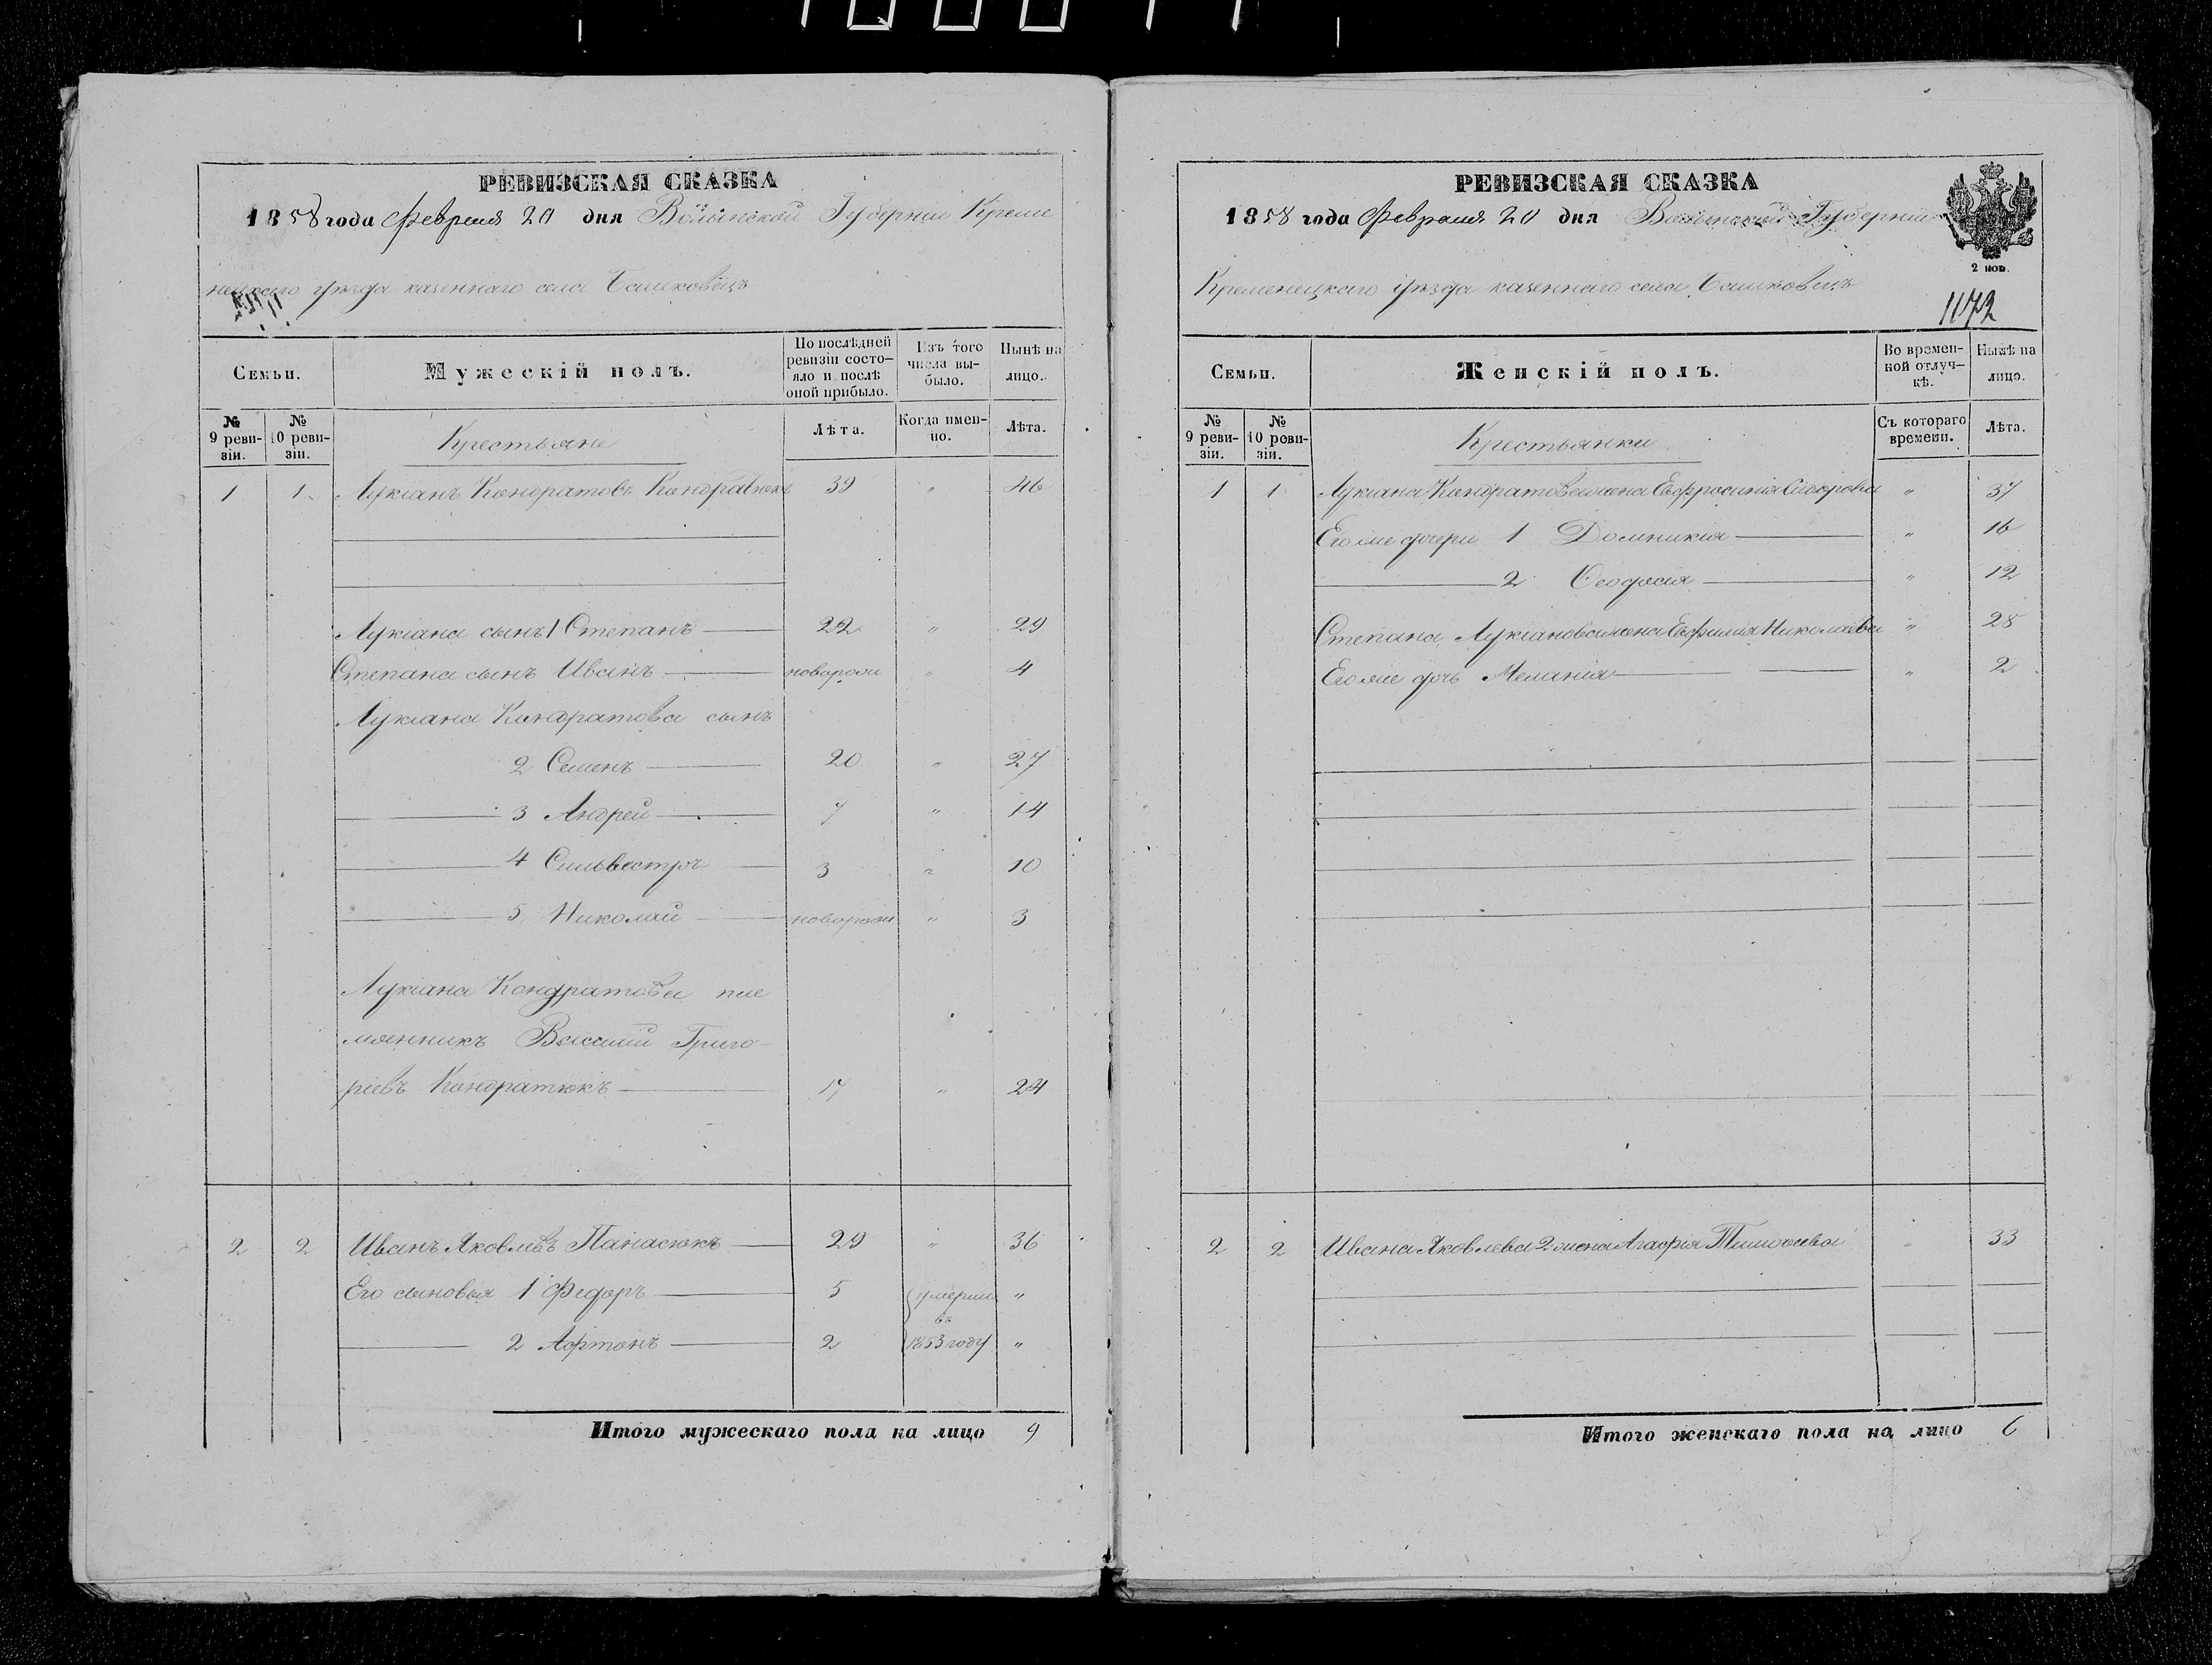 РЕВИЗСКАЯ СКАЗКА
1858 года Февраля 20 дня Волынской Губернии Креме
нецкаго уѣзда казеннаго села Башковецъ
Семьи.
Мужескій полъ.
По послѣдней ревизіи состо-
яло и послѣ оной прибыло.
Изъ того числа вы-
было.
Нынѣ на лицо.
№ 9 реви-
зіи.
№ 10 реви-
зіи.
Крестьяне
Лѣта.
Когда имен-
но.
Лѣта.
1 1 Лукіанъ Кондратовъ Кондратюкъ 39 " 46
Лукіана сынъ 1 Степанъ 22 " 29
Степана сынъ Иванъ новорож " 4
Лукіана Кондратова сынъ
2 Семенъ 20 " 27
3 Андрей 7 " 14
4 Сильвестръ 3 " 10
5 Николай новорож " 3
Лукіана Кондратова пле
мянникъ Василий Григо-
ріевъ Кондратюкъ 17 " 24
2 2 Иванъ Яковлевъ Панасюкъ 29 " 36
Его сыновья 1 Федоръ 5 умерли "
въ
2 Афтонъ 2 1853 году "
Итого мужескаго пола на лицо 9
РЕВИЗСКАЯ СКАЗКА
1858 года Февраля 20 дня Волынской Губерніи
2 коп.
Кременецкаго уѣзда казеннаго села Башковецъ
1072
Семьи.
Женскій полъ.
Во времен-
ной отлуч-
кѣ.
Нынѣ на лицо.
№ 9 реви-
зіи.
№ 10 реви-
зіи.
Крестьянки
Съ котораго времени.
Лѣта.
1 1 Лукіана Кондратова жена Евфросинія Сидорова " 37
Его же дочери 1 Домникія " 16
2 Феодосія " 12
Степана Лукіанова жена Евфимія Николаева " 28
Его же дочь Меланія " 2
2 2 Ивана Яковлева 2 жена Агафія Тимофеева " 33
Итого женскаго пола на лицо 6